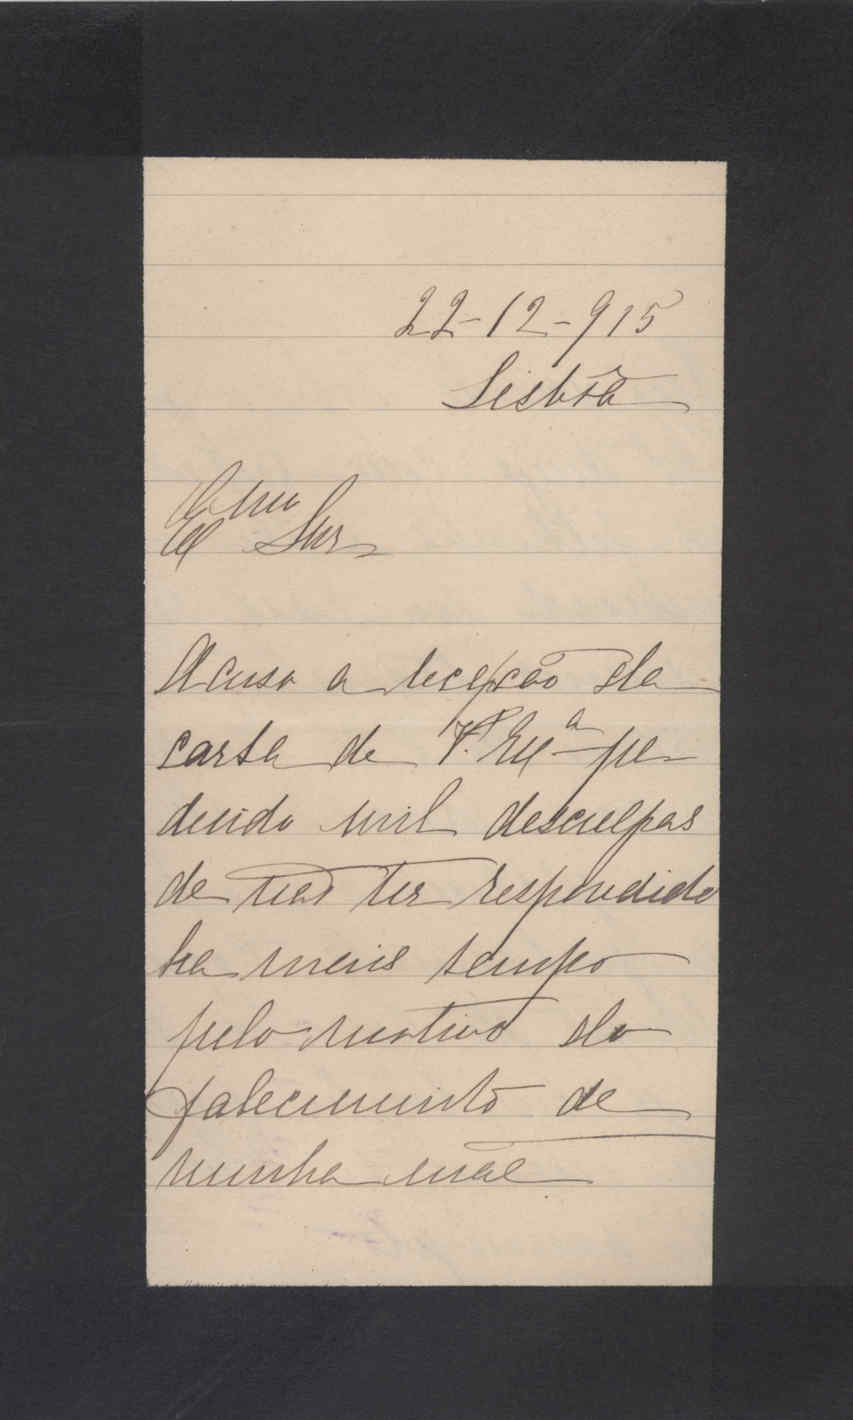 22-12-915
Lisbôa
Exmo Snr
Acuso a recepção da
carta de V.ª Exª pe-
dindo mil desculpas
de não ter respondido
ha mais tempo
pelo motivo do
falecimento de
minha mãe